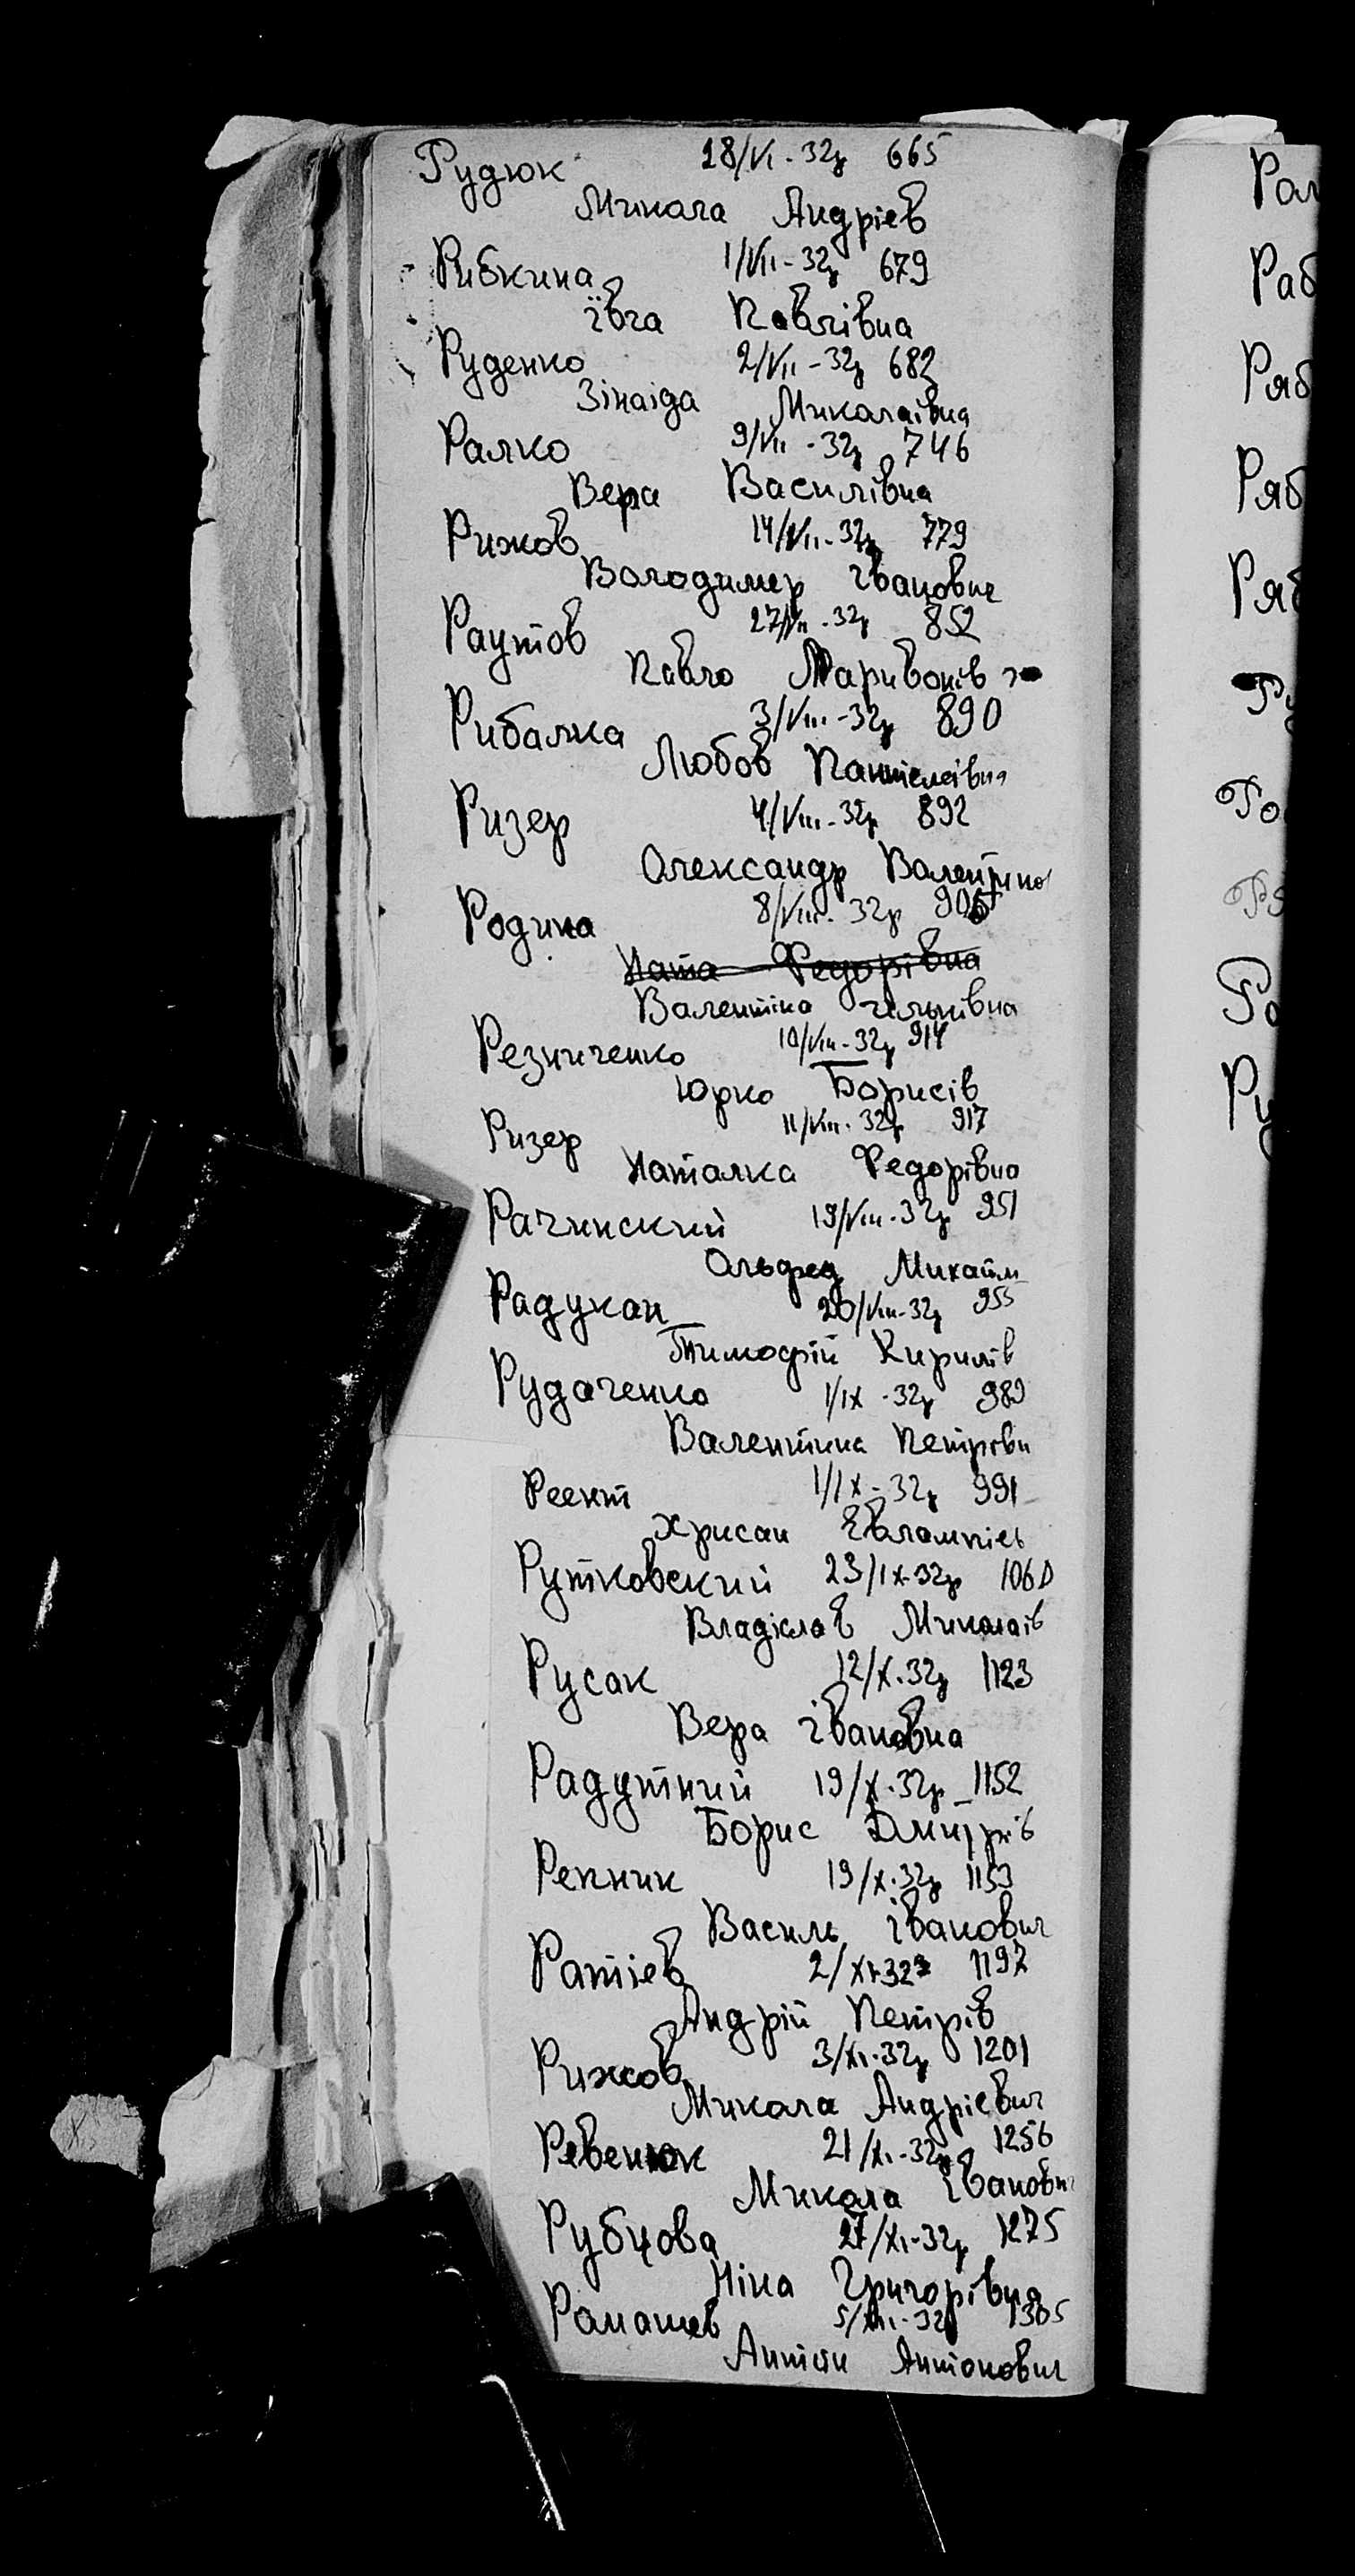 Рудюк 28/VI-32р 665
Микола Андріев
Рибкина 1/VII-32р 679
івга Павлівна
Руденко 2/VII-32р 682
Зінаіда Миколаівна
Ралко 9/VII-32р 746
Вера Василівна
Рижов 14/VII-32р 779
Володимер іванович
Раутов 27/VII-32р 852
Павло
Рибалка 3/VIII-32р 890
Любов Пантелеівна
Ризер 4/VIII-32р 892
Олександр Валентіно
Родина 8/VIII-32р 906
Ната Федорівна
Валентіна
Резниченко 10/VIII-32р 914
Юрко Борисів
Ризер 11/VIII-32р 917
Наталка Федорівна
Рачинский 19/VIII-32р 951
Альфред Михайл
Радукан 20/VIII-32р 955
Тимофій Кирилів
Рудаченко 1/IX-32р 989
Валентина Петрівн
Реент 1/IX-32р 991
Хрисан Євлампіев
Рутковский 23/IX-32р 1060
Владіслав Миколаів
Русак 12/X-32р 1123
Вера івановна
Радутний 19/X-32р 1152
Борис Дмитрів
Репник 19/X-32р 1153
Василь іванович
Ратіев 2/XI-32р 1197
Андрій Петрів
Рижов 3/XI-32р 1201
Микола Андріевич
Ревенюк 21/XI-32р 1256
Микола івнович
Рубцова 27/XI-32р 1275
Ніна Григорівна
5/XII-32р 1305
Антін Антонович
Раб
Ряб
Ряб
Ряб
Ро
Ро